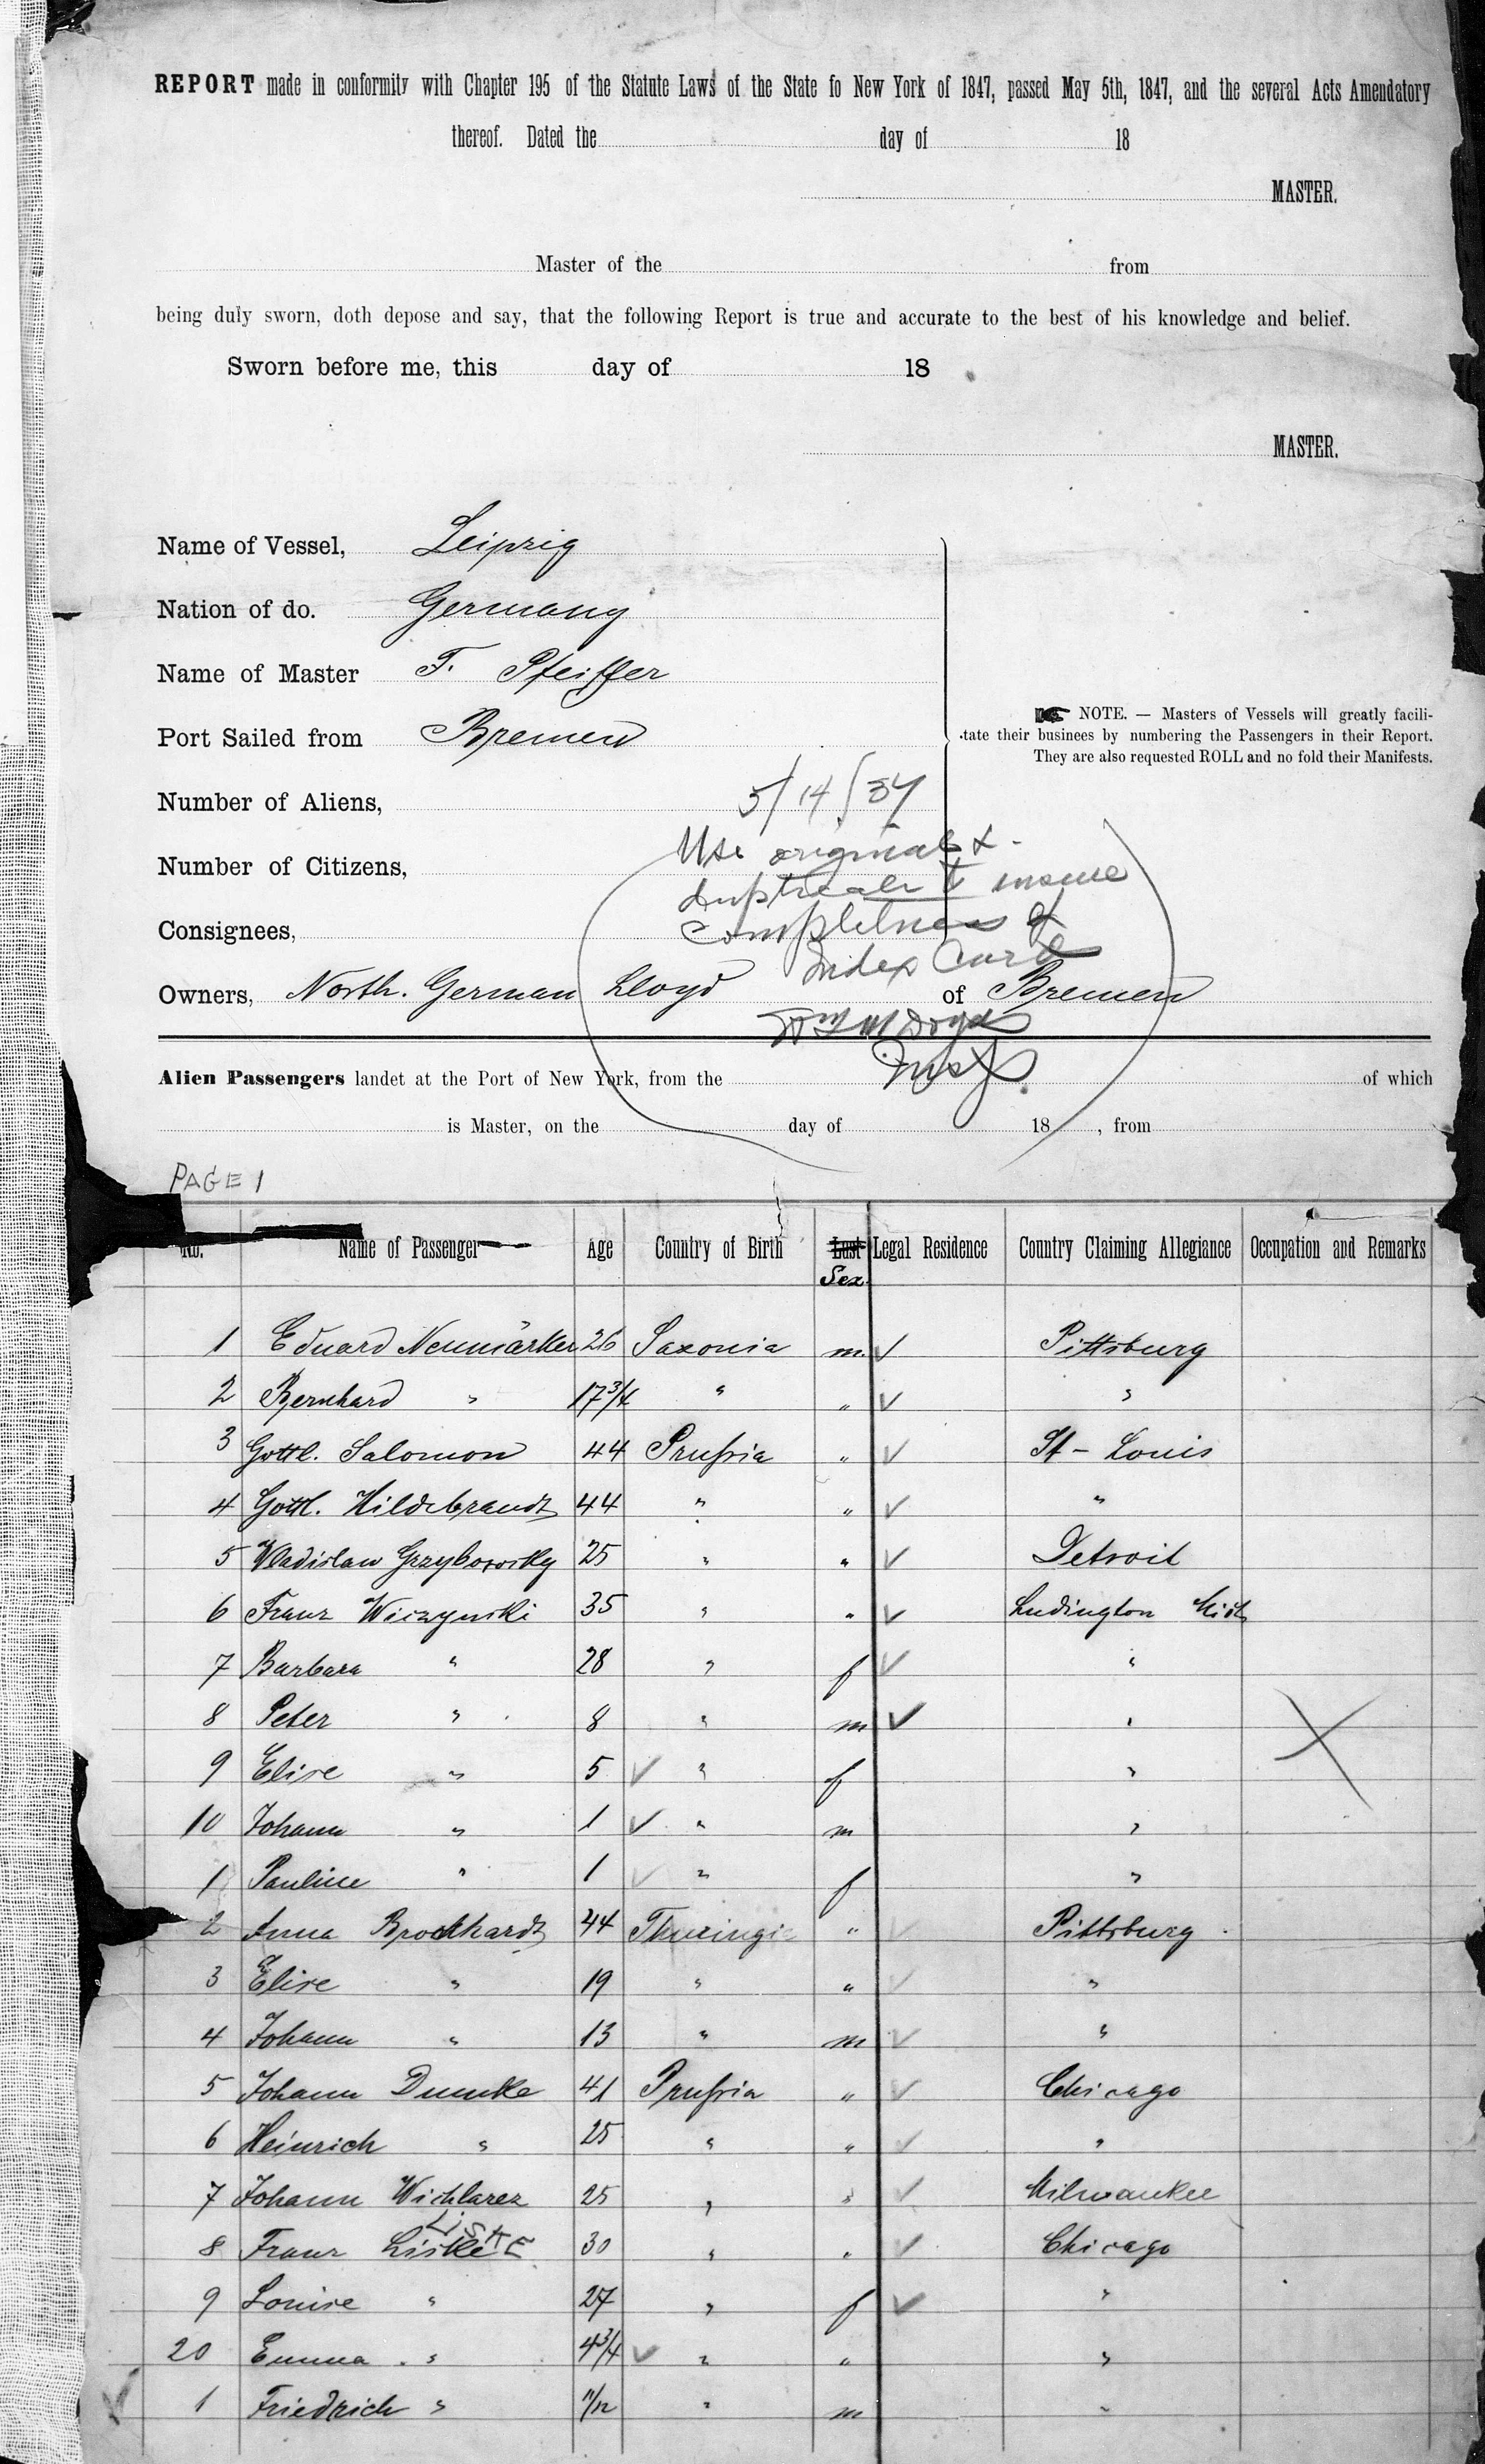 REPORT made in conformity with Chapter 195 of the Statute Laws of the State fo New York of 1847, passed May 5th, 1847, and the several Acts Amendatory
thereof. Dated the day of 18
MASTER.
Master of the from
being duly sworn, doth depose and say, that the following Report is true and accurate to the best of his knowledge and belief.
Sworn before me, this day of 18
MASTER.
Name of Vessel, Leipzig
Nation of do. Germany
Name of Master F. Pfeiffer
Port Sailed from Bremen
NOTE. — Masters of Vessels will greatly facili-
tate their businees by numbering the Passengers in their Report.
They are also requested ROLL and no fold their Manifests.
Number of Aliens, 5/14/37
Number of Citizens, Use original &
duplicate to insure
Consignees, completness of
Index Card
Owners, North. German Lloyd of Bremen
Alien Passengers landet at the Port of New York, from the of which
is Master, on the day of 18 , from
PAGE 1
No. Name of Passenger Age Country of Birth Last Legal Residence Country Claiming Allegiance Occupation and Remarks
Sex
1 Eduard Neumärker 26 Saxonia m. ✓ Pittsburg
2 Bernhard " 17 3/4 " " ✓ "
3 Gottl. Salomon 44 Prußia " ✓ St - Louis
4 Gottl. Hildebrandt 44 " " ✓ "
5 Wladislaw Grzybowsky 25 " " ✓ Detroit
6 Franz Wiczynski 35 " " ✓ Ludington Mich
7 Barbara " 28 " f ✓ "
8 Peter " 8 " m ✓ "
9 Elise " 5 ✓ " f "
10 Johann " 1 ✓ " m "
1 Pauline " 1 ✓ " f "
2 Anna Brockhardt 44 Thuringia " ✓ Pittsburg
3 Elise " 19 " " ✓ "
4 Johann " 13 " m ✓ "
5 Johann Dumke 41 Prußia " ✓ Chicago
6 Heinrich " 25 " " ✓ "
7 Johann Wichlarez 25 " " ✓ Milwaukee
LISKE
8 Franz Liske 30 " " ✓ Chicago
9 Louise " 27 " f ✓ "
20 Emma " 4 3/4 ✓ " " "
1 Friedrich " 11/12 " m "